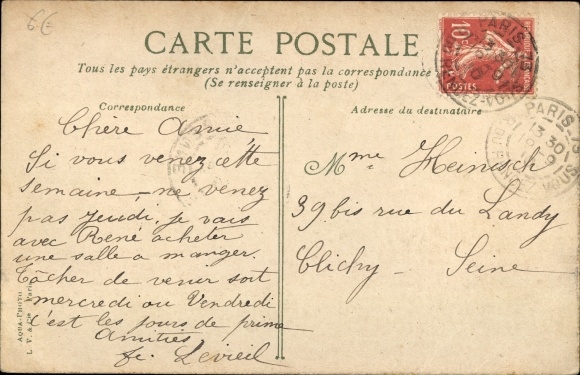 6€
CARTE POSTALE
Tous les pays étrangers n'acceptent pas la correspondance
(Se renseigner à la poste)
Correspondance
Adresse du destinataire
Chère Amie,
Si vous venez cette
semaine, ne venez
pas Jeudi, je vais
avec René acheter
une salle a manger.
Tâcher de venir soit
mercredi ou Vendredi
c'est les jours de prime
Amitiés
Levieil
Mme Heinisch
39 bis rue du Landy
Clichy - Seine
10
POSTES
PARIS
PARIS
13 30
AQUA-PHOTO
L. V. & Cie Paris